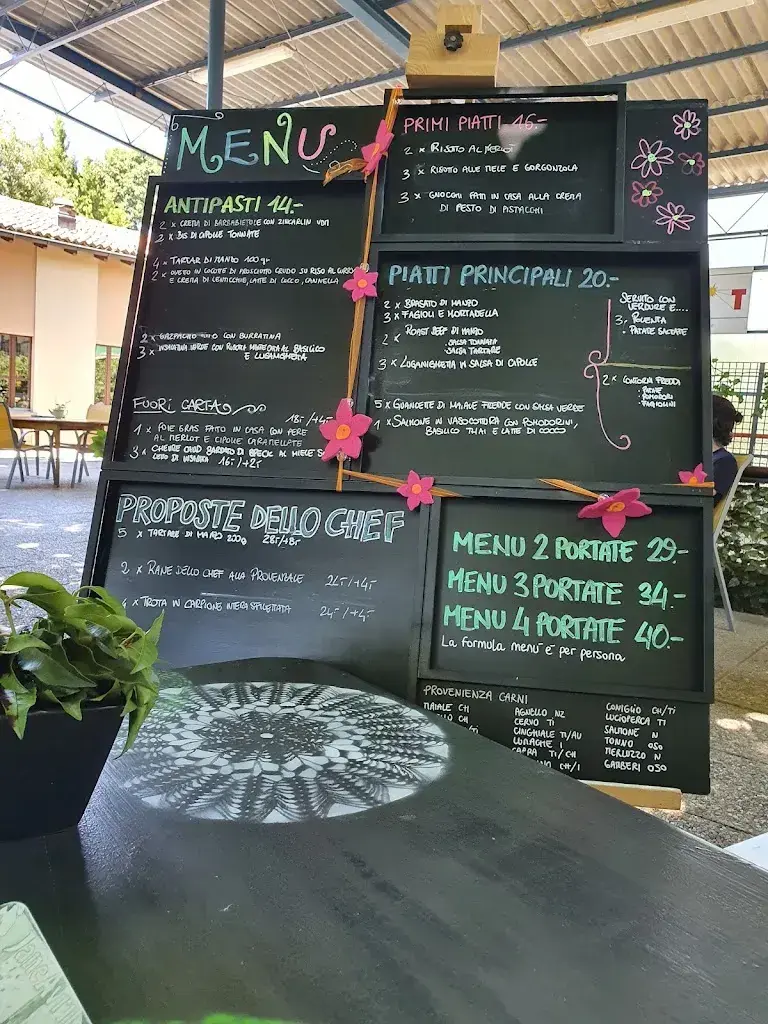 MENU
ANTIPASTI 14.-
2 x CREMA DI BARBABIETOLE CON ZINCARLIN VDM
2 x BIS DI CIPOLLE TONNATE
4 x TARTAR DI MANZO 100 gr
2 x UOVO IN COCOTTE DI PROSCIUTTO CRUDO SU RISO AL CURRY
E CREMA DI LENTICCHIE, LATTE DI COCCO, CANNELLA
2 x GAZPACHO CON BURRATINA
3 x INSALATINA VERDE CON RICOTTA AL BASILICO
E LUGANIGHETTA
FUORI CARTA
18.- /+4.-
1 x FOIE GRAS FATTO IN CASA CON PERE
AL MERLOT E CIPOLLE CARAMELLATE
3 x CHEVRE CHAUD BARDATO DI SPECK AL MIELE SU
LETTO DI INSALATA 16.- /+2.-
PRIMI PIATTI 16.-
2 x RISOTTO AL MERLOT
3 x RISOTTO ALLE MELE E GORGONZOLA
3 x GNOCCHI FATTI IN CASA ALLA CREMA
DI PESTO DI PISTACCHI
PIATTI PRINCIPALI 20.-
2 x BRASATO DI MANZO
3 x FAGIOLI E MORTADELLA
2 x ROAST BEEF DI MANZO
. SALSA TONNATA
. SALSA TARTARE
3 x LUGANIGHETTA IN SALSA DI CIPOLLE
5 x GUANCETTE DI MAIALE FREDDE CON SALSA VERDE
1 x SALMONE IN VASOCOTTURA CON POMODORINI,
BASILICO THAI E LATTE DI COCCO
SERVITO CON
VERDURE E....
3. POLENTA
. PATATE SALTATE
2 x CONTORNI FREDDI
. PATATE
. POMODORI
. FAGIOLINI
T
PROPOSTE DELLO CHEF
5 x TARTARE DI MANZO 200g 28.-/+8.-
2 x RANE DELLO CHEF ALLA PROVENZALE 24.-/+4.-
x TROTA IN CARPIONE INTERA SFILETTATA 24.-/+4.-
MENU 2 PORTATE 29.-
MENU 3 PORTATE 34.-
MENU 4 PORTATE 40.-
La formula menu è per persona
PROVENIENZA CARNI
MAIALE CH AGNELLO NZ CONIGLIO CH/TI
CH CERVO TI LUCIOPERCA TI
CINGHIALE TI/AU SALMONE N
LUMACHE I TONNO 050
CAPRA TI/CH MERLUZZO N
CH/I GAMBERI 050